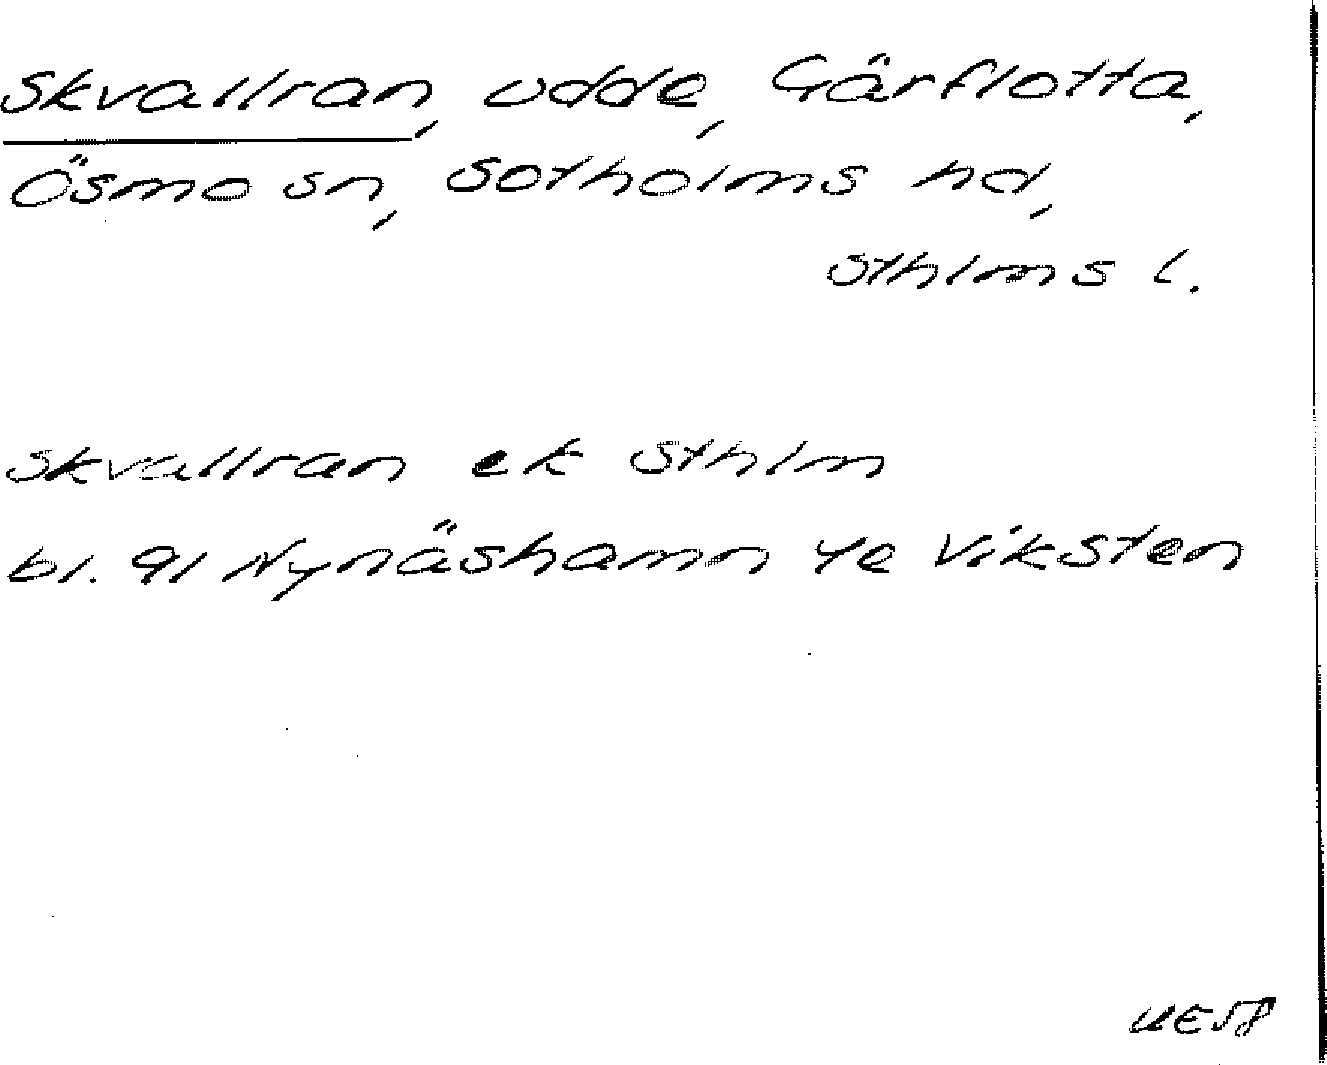 Skvallran, udde, Gärflotta,
Ösmo sn, Sotholms hd,
Sthlms l.
Skvallran ek Sthlm
bl. 91 Nynäshamn 4e Viksten
UE58